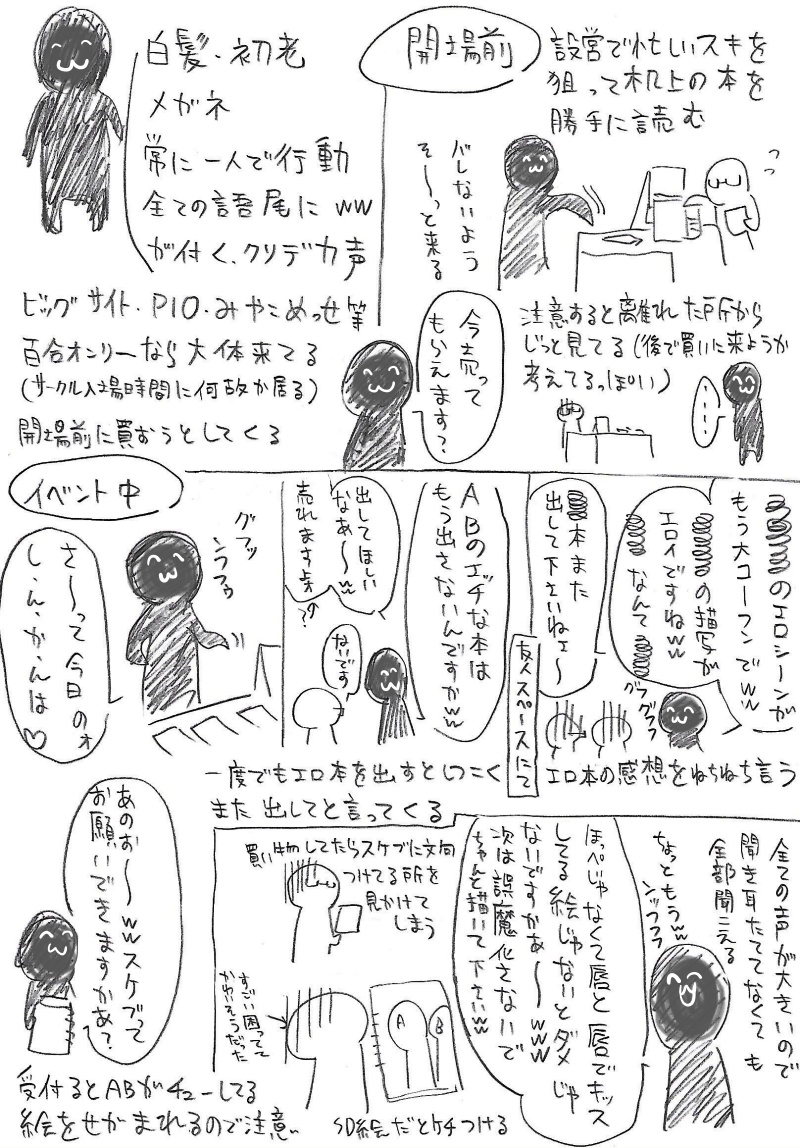 白髪・初老
メガネ
常に一人で行動
全ての語尾にww
が付く、クソデカ声
ビッグサイト・PIO・みやこめっせ等
百合オンリーなら大体来てる
(サークル入場時間に何故か居る)
開場前に買おうとしてくる
開場前
設営で忙しいスキを
狙って机上の本を
勝手に読む
バレないよう
そ〜っと来る
今売って
もらえます?
注意すると離れた所から
じっと見てる(後で買いに来ようか
考えてるっぽい)
・・・・
イベント中
グフッ
ンフゥ
さ〜って今日のォ
し、ん、か、ん、は♡
ABのエッチな本は
もう出さないんですかww
出してほしい
なぁ〜〜ww
売れますよ?
ないです
一度でもエロ本を出すとしつこく
また出してと言ってくる
のエロシーンが
もう大コーフンでww
の描写が
エロイですねww
なんて
本また
出して下さいねェ〜
グフグフッ
友人スペースにて
エロ本の感想をねちねち言う
あのぉ〜〜wwスケブって
お願いできますかぁ?
受付るとABがチューしてる
絵をせがまれるので注意、
買い物してたらスケブに文句
つけてる所を
見かけて
しまう
すごい困ってて
かわいそうだった
A
B
SD絵だとケチつける
ほっぺじゃなくて唇と唇でキッス
してる絵じゃないとダメじゃ
ないですかぁ〜〜www
次は誤魔化さないで
ちゃんと描いて下さいww
ちょっともうww
ンッフフフ
全ての声が大きいので
聞き耳たててなくても
全部聞こえる